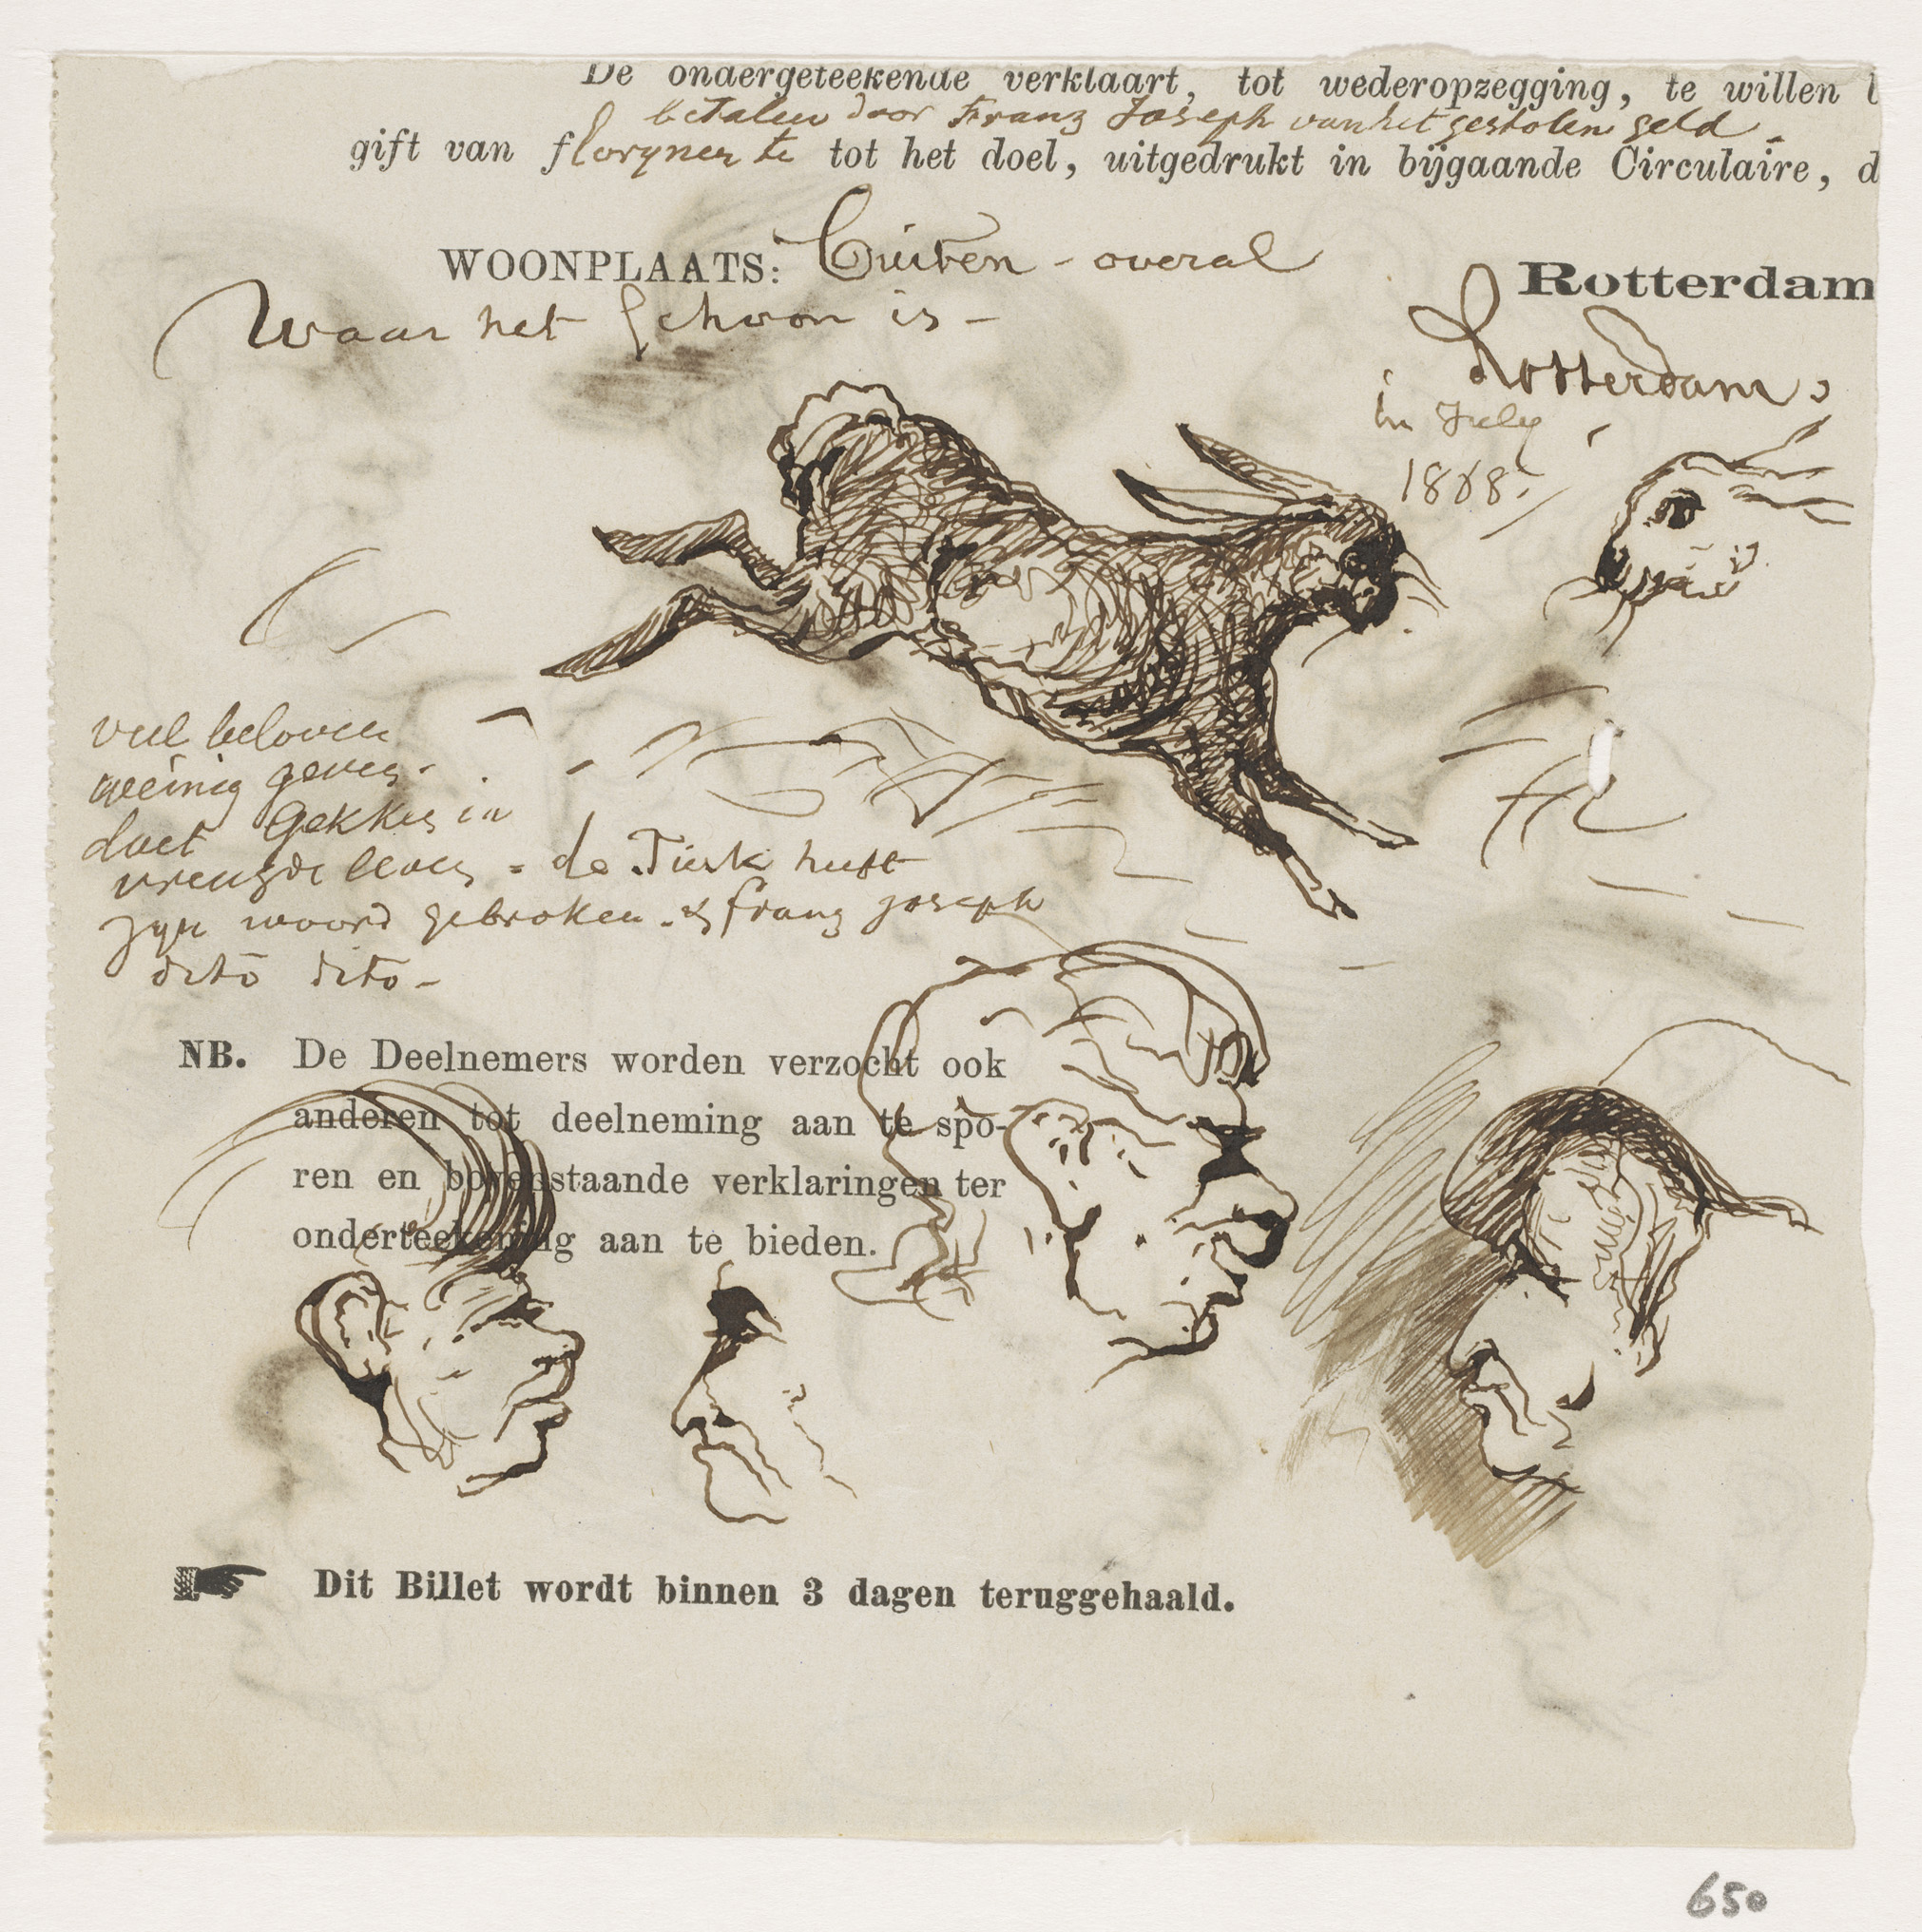 De ondergeteekende verklaart, tot wederopzegging, te willen
betalen door Franz Joseph van het gestolen geld -
gift van florynen te tot het doel, uitgedrukt in bijgaande Circulaire, d
WOONPLAATS: Buiten - overal
Rotterdam
Waar het Schoon is -
Rotterdam
in July
1868.
veel beloven
weinig geven
doet Gekken in
vreugde leven = de Turk heeft
zyn woord gebroken - & franz joseph
dito dito -
NB. De Deelnemers worden verzocht ook
anderen tot deelneming aan te spo-
ren en bovenstaande verklaringen ter
onderteekening aan te bieden.
Dit Billet wordt binnen 3 dagen teruggehaald.
650